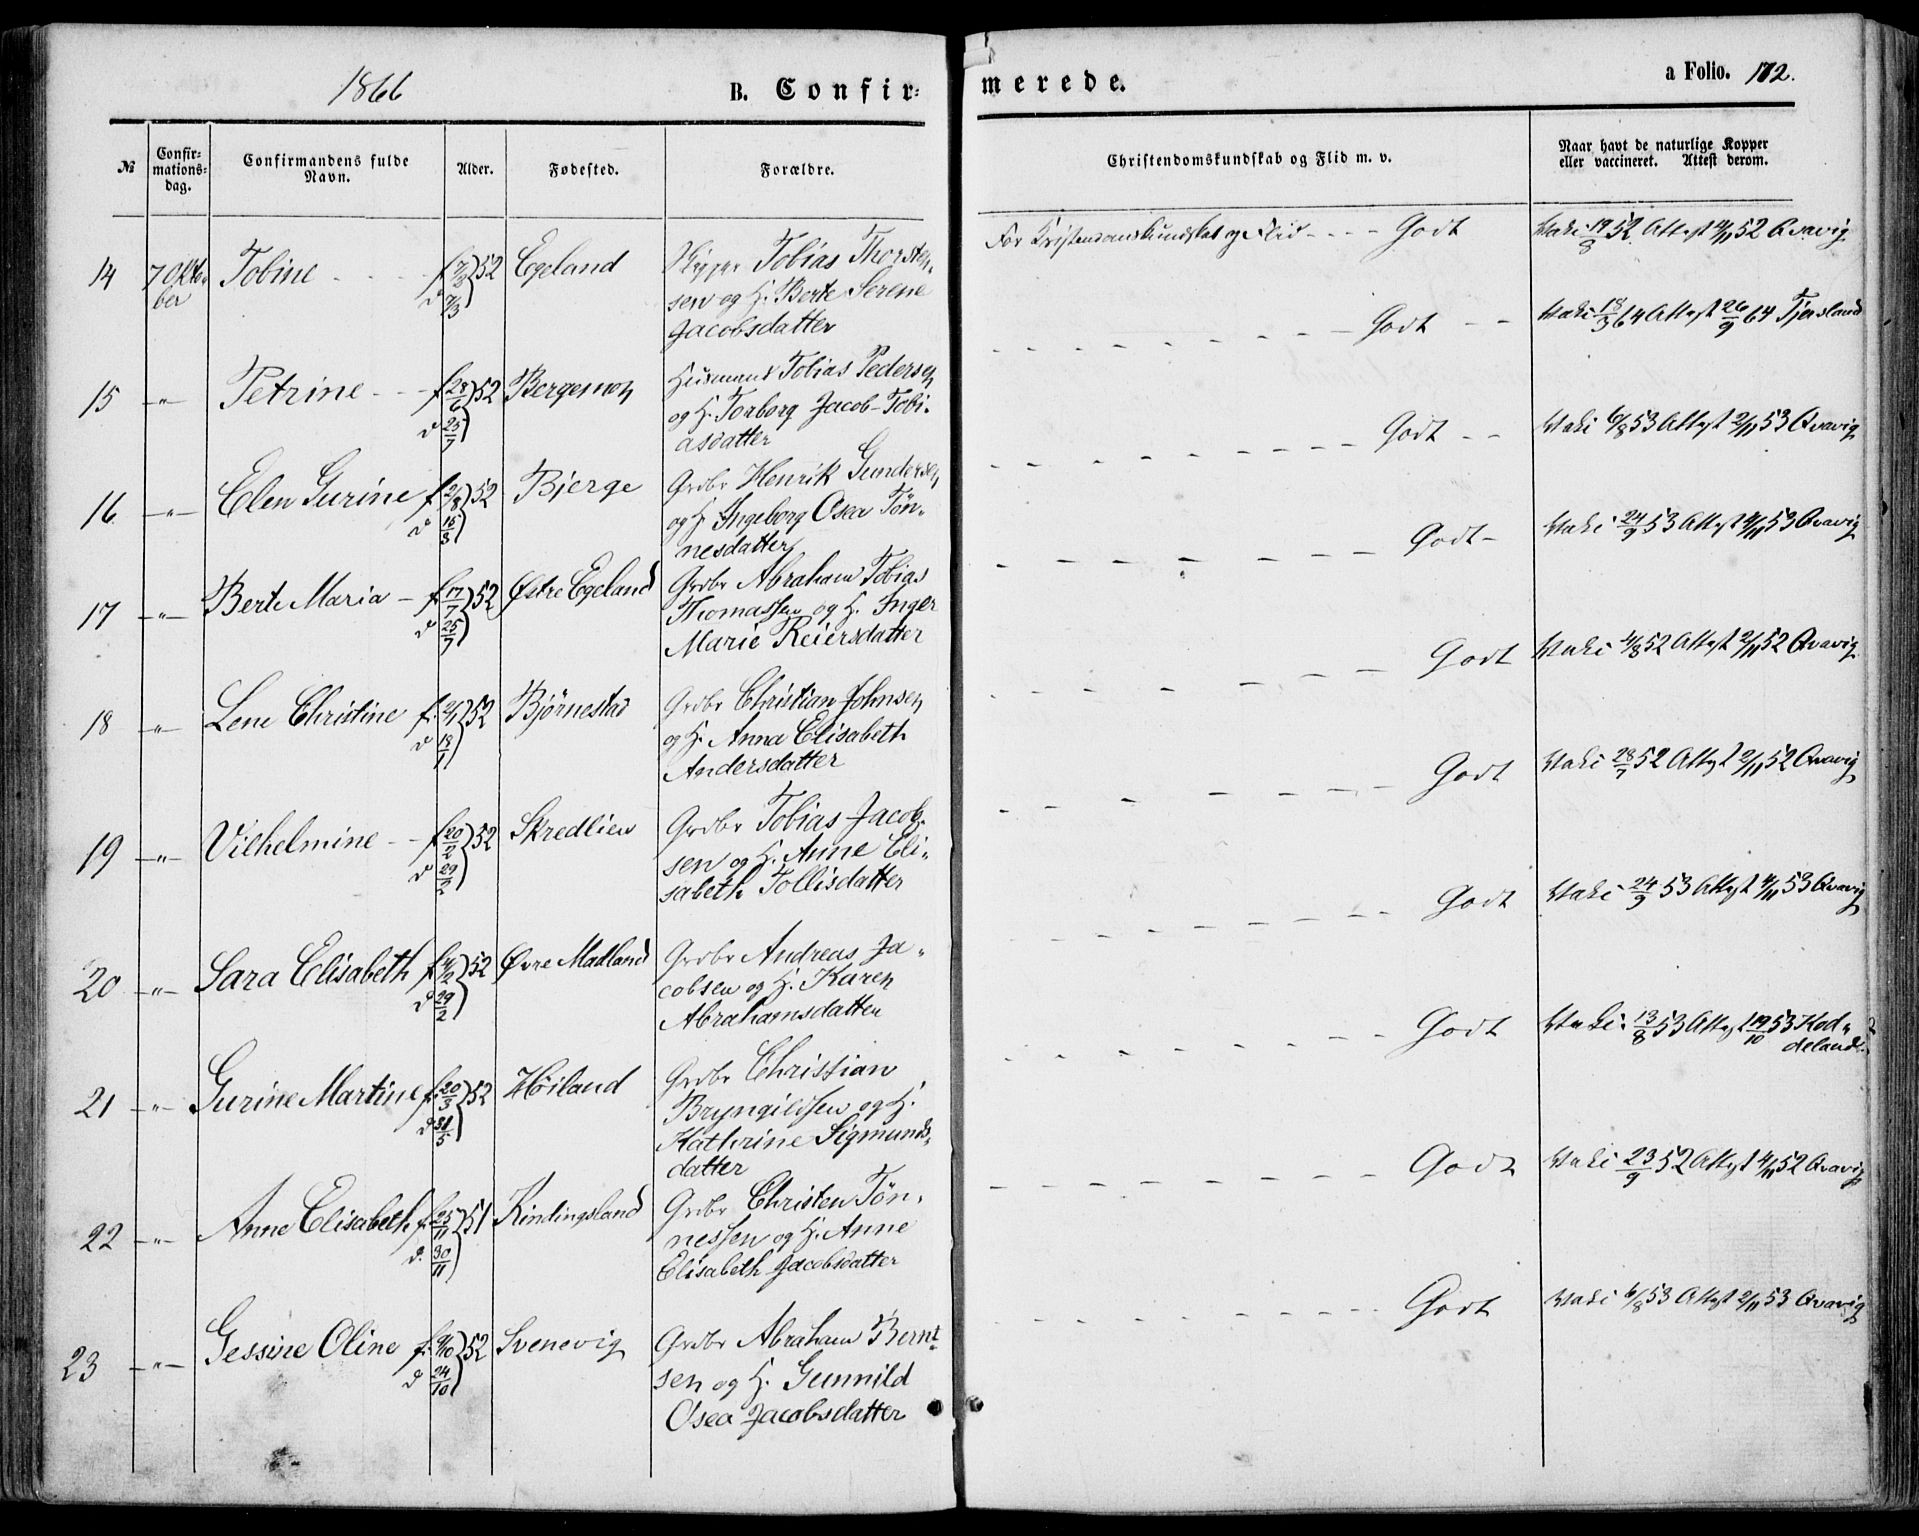 1866 B. Confir=
merede. a Folio. 172.
№ Confir=mations=dag. Confirmandens fulde Navn. Alder. Fødested. Forældre. Christendomskundskab og Flid m. v. Naar havt de naturlige Kopper eller vaccineret. Attest derom.
14 7 Okto-ber Tobine - - - f 52 Egeland Tobias Thorsten-
sen og H. Berte Serene
Jacobsdatter
For Kristendomskundskab og Flid - - - - Godt Vaki 19/8 52 Attest 52 Qvavig
15 -"- Petrine - - f 28/6 52 Bergesmon Husmand Tobias Pedersen
d 25/7 og H. Torborg Jacob-Tobi-
asdatter
- - - Godt - - Vaki 18/3 64 Attest 26/9 64 Fjersland
16 -"- Elen Gurine f 2/8 52 Bjerge Grdbr Henrik Gundersen
d 15/8 og H. Ingeborg Osea Tøn-
nesdatter
- - - Godt - - Vaki 6/8 53 Attest 2/11 53 Qvavig
17 -"- Berte Maria - f 17/7 52 Østre Egeland Grdbr Abraham Tobias
d 25/7 Thomassen og H. Inger
Marie Reiersdatter
- - - Godt - Vaki 24/9 53 Attest 4/11 53 Qvavig
18 " Lene Christine f. 52 Bjørnestad Grdbr Christian Johnsen
d 18/1 og H. Anna Elisabeth
Andersdatter
- - - Godt Vaki 4/8 52 Attest 2/11 52 Qvavig
19 -"- Vilhelmine - - f 20/2 52 Skredlien Grdbr Tobias Jacob-
d 29/2 sen og H. Anne Eli-
sabeth Tollisdatter
- - - Godt Vaki 28/7 52 Attest 2/11 52 Qvavig
20 -"- Sara Elisabeth f 52 Øvre Madland Grdbr Andreas Ja-
d 29/2 cobsen og H. Karen
Abrahamsdatter
- - - Godt Vaki 24/9 53 Attest 4/11 53 Qvavig
21 -"- Gurine Martine f. 20/3 52 Høiland Grdbr Christian
d 31/5 Bryngildsen og H.
Kathrine Sigmunds-
datter
- - - Godt Vaki 13/8 53 Attest 19/10 53 Kod-
delands
22 -"- Anne Elisabeth f. 25/11 51 Rindingsland Grdbr Christen Tøn-
d. 30/11 nessen og H. Anne
Elisabeth Jacobsdatter
- - - Godt Vaki 23/9 52 Attest 4/11 52 Qvavig
23 -"- Gessine Oline f. 9/10 52 Svenevig Grdbr Abraham Bernt-
d 24/10 sen og H. Gunnild
Osea Jacobsdatter
- - - Godt Vaki 6/8 53 Attest 2/11 53 Qvavig